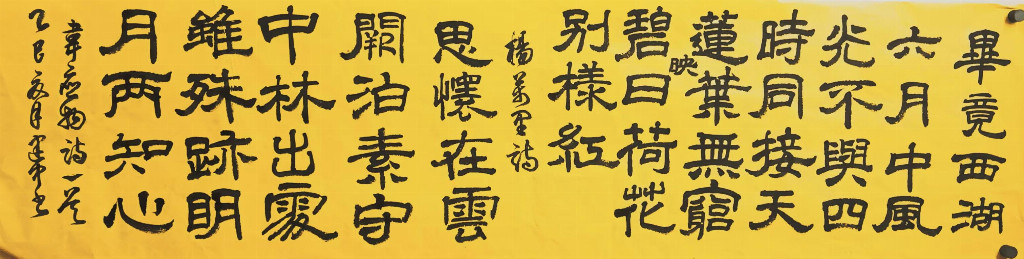 畢竟西湖
六月中風
光不與四
時同接天
蓮葉無窮
碧映日荷花
别樣紅
楊萬里詩
思懷在雲
闕泊素守
中林出處
雖殊跡明
月两知心
韋應物詩一首
乙巳夏月
书